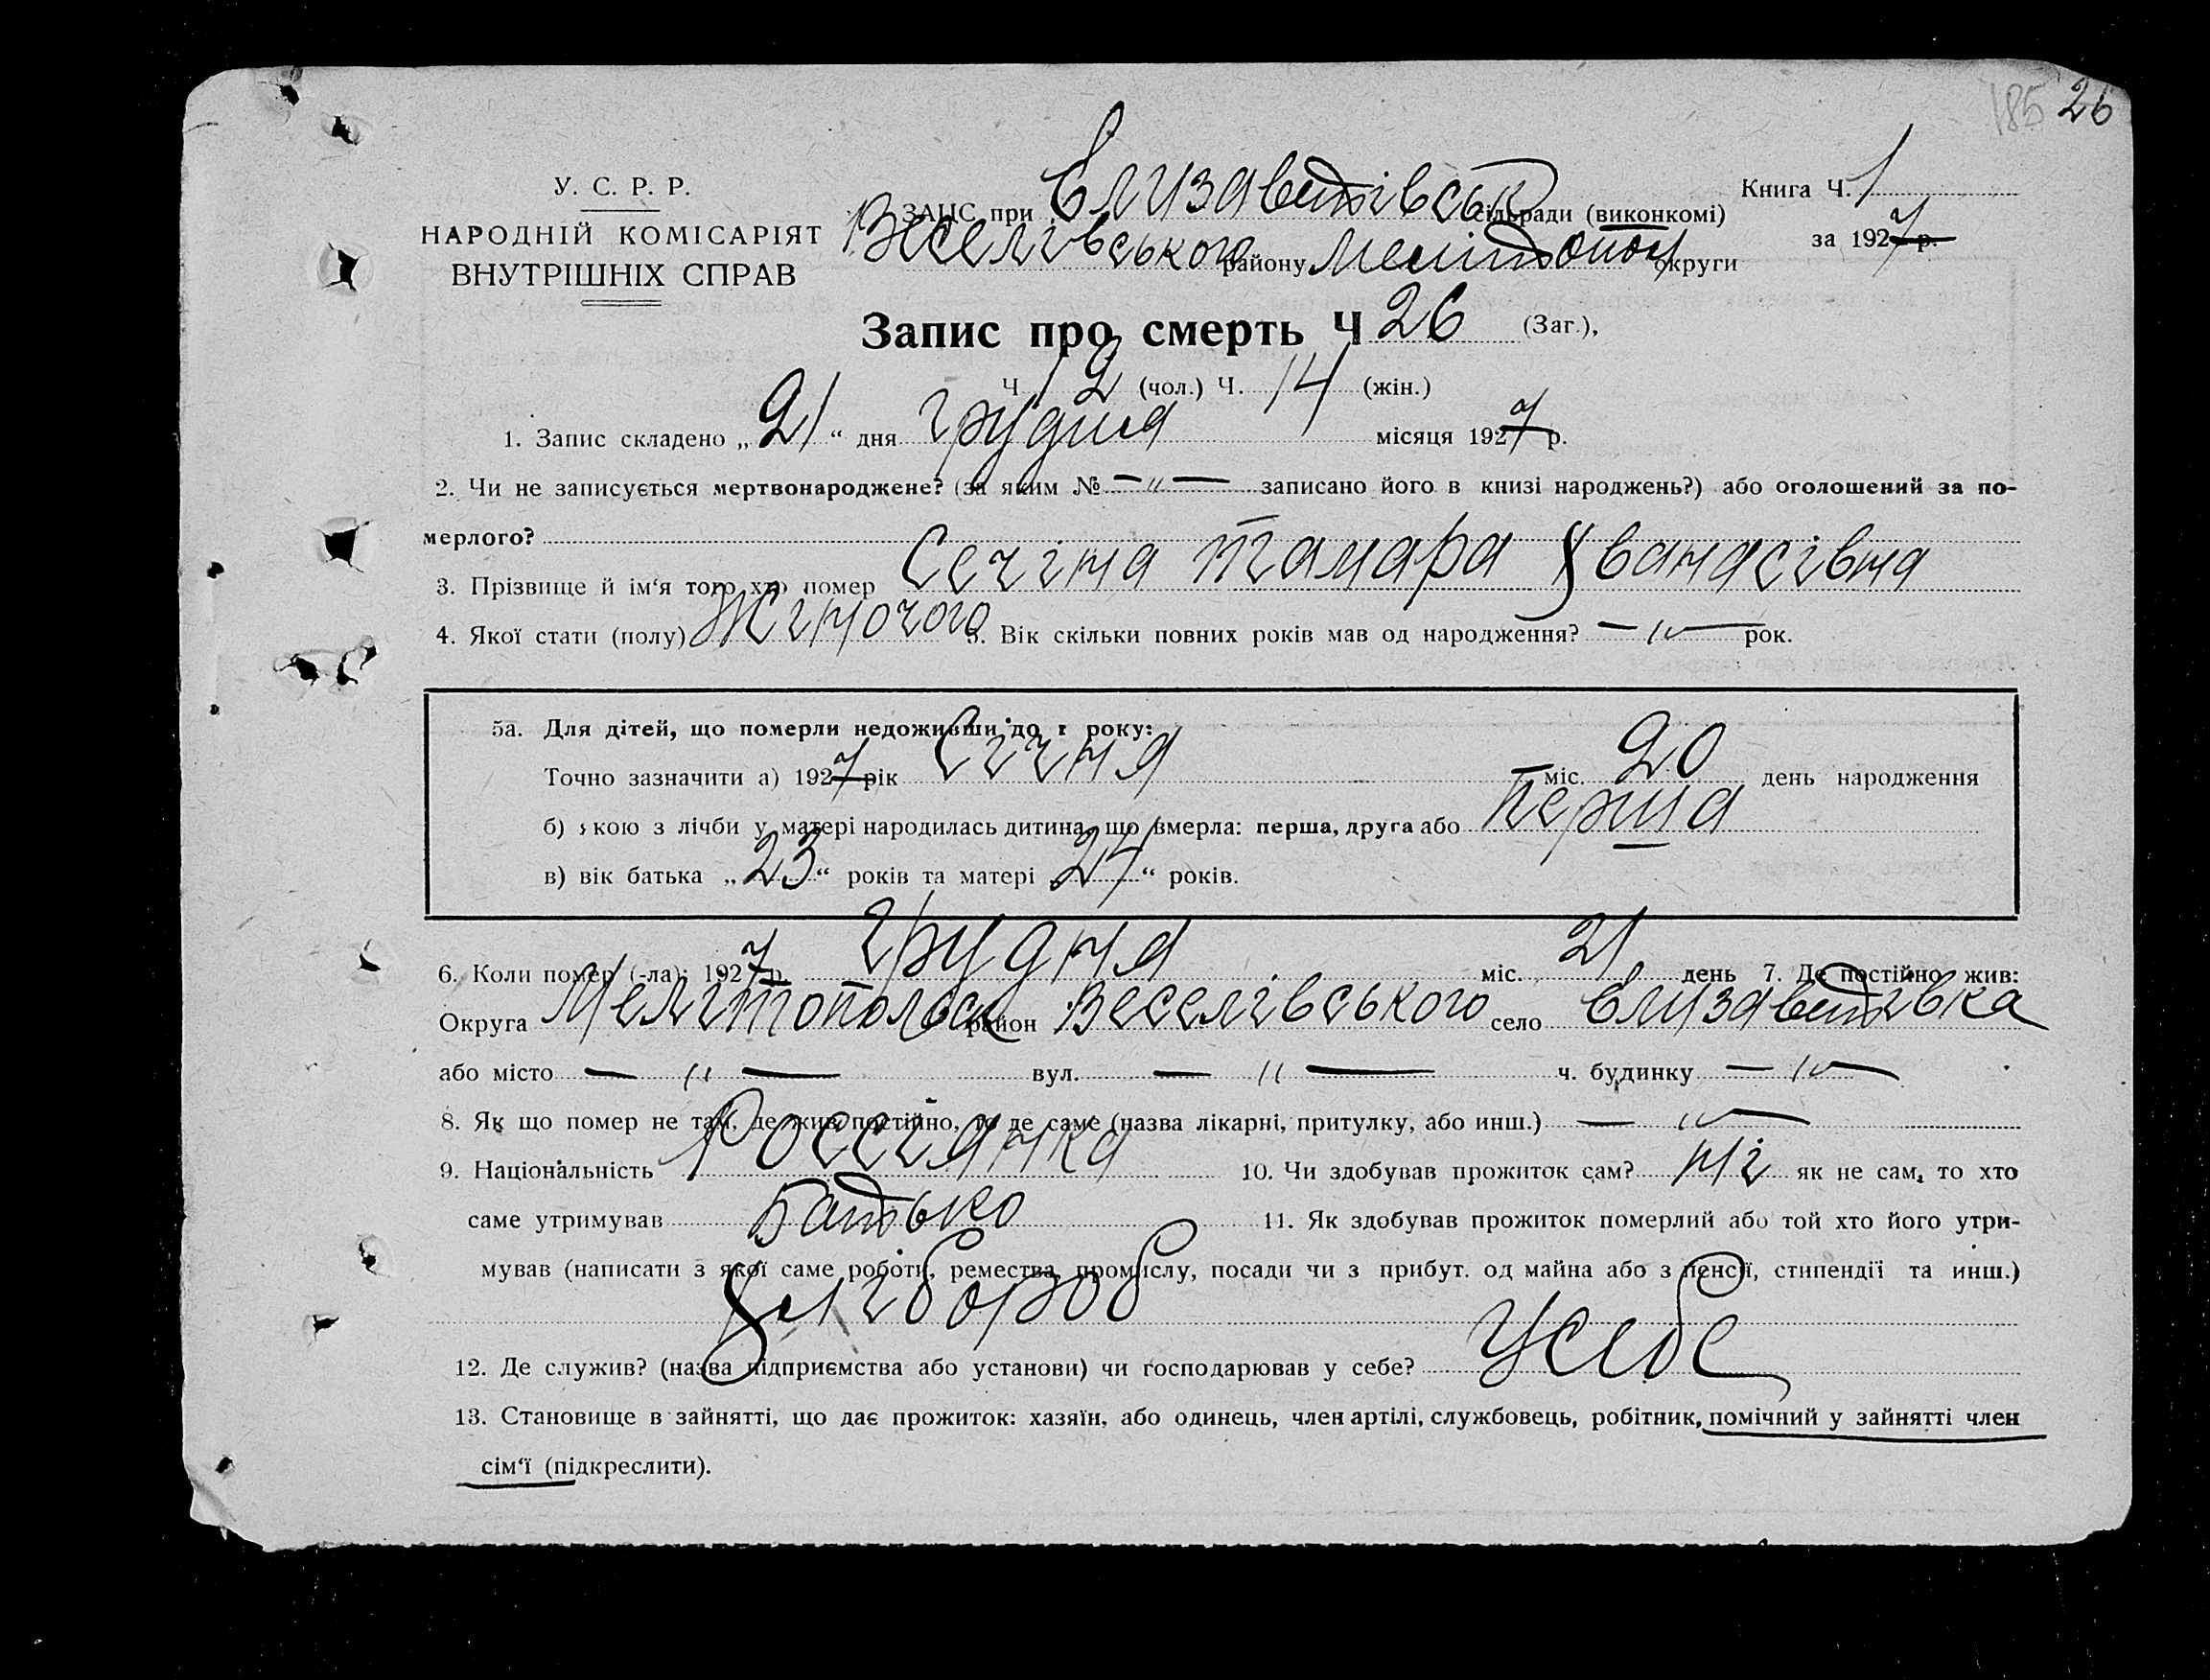 185 26
У. С. Р. Р.
НАРОДНІЙ КОМІСАРІЯТ
ВНУТРІШНІХ СПРАВ
ЗАЦС при Єлизаветівськ сільради (виконкомі)
Веселівського району Мелітопол округи
Книга Ч. 1
за 1927 р.
Запис про смерть Ч 26 (Заг.),
Ч 12 (чол.) Ч. 14 (жін.)
1. Запис складено „ 21 “ дня грудня місяця 1927 р.
2. Чи не записується мертвонароджене? (за яким № — „ — записано його в книзі народжень?) або оголошений за по-
мерлого?
3. Прізвище й ім'я того, хто помер Сечіна Тамара
4. Якої стати (полу) Жіночого 5. Вік скільки повних років мав од народження? — „ — рок.
5а. Для дітей, що померли недоживши до 1 року:
Точно зазначити а) 1927 рік Січня міс. 20 день народження
б) якою з лічби у матері народилась дитина, що вмерла: перша, друга або перша
в) вік батька „ 23 “ років та матері „ 24 “ років.
6. Коли помер (-ла): 1927 р. грудня міс. 21 день 7. Де постійно жив:
Округа Мелітопольськ район Веселівського село Єлизаветівка
або місто — „ — вул. — „ — ч. будинку — „ —
8. Як що помер не там, де жив постійно, то де саме (назва лікарні, притулку, або инш.) — „ —
9. Національність Россіянка 10. Чи здобував прожиток сам? ні як не сам, то хто
саме утримував Батько 11. Як здобував прожиток померлий або той хто його утри-
мував (написати з якої саме роботи, ремества, промислу, посади чи з прибут. од майна або з пенсії, стипендії та инш.)
Хліббороб
12. Де служив? (назва підприємства або установи) чи господарював у себе? Усебе
13. Становище в зайнятті, що дає прожиток: хазяїн, або одинець, член артілі, службовець, робітник, помічний у зайнятті член
сім'ї (підкреслити).